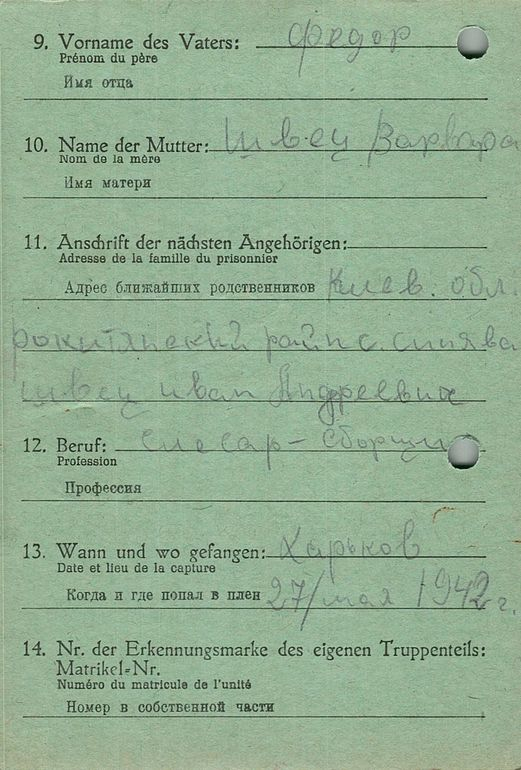 9. Vorname des Vaters: Федор
Prénom du père
Имя отца
10. Name der Mutter: Швец Варвара
Nom de la mère
Имя матери
11. Anschrift der nächsten Angehörigen:
Adresse de la famille du prisonnier
Адрес ближайших родственников Киев. обл.
рокитянский район с. синява
швец иван Андреевич
12. Beruf: слесар-сборщик
Profession
Профессия
13. Wann und wo gefangen: Харьков
Date et lieu de la capture
Когда и где попал в плен 27/мая 1942 г.
14. Nr. der Erkennungsmarke des eigenen Truppenteils:
Matrikel-Nr.
Numéro du matricule de l'unité
Номер в собственной части